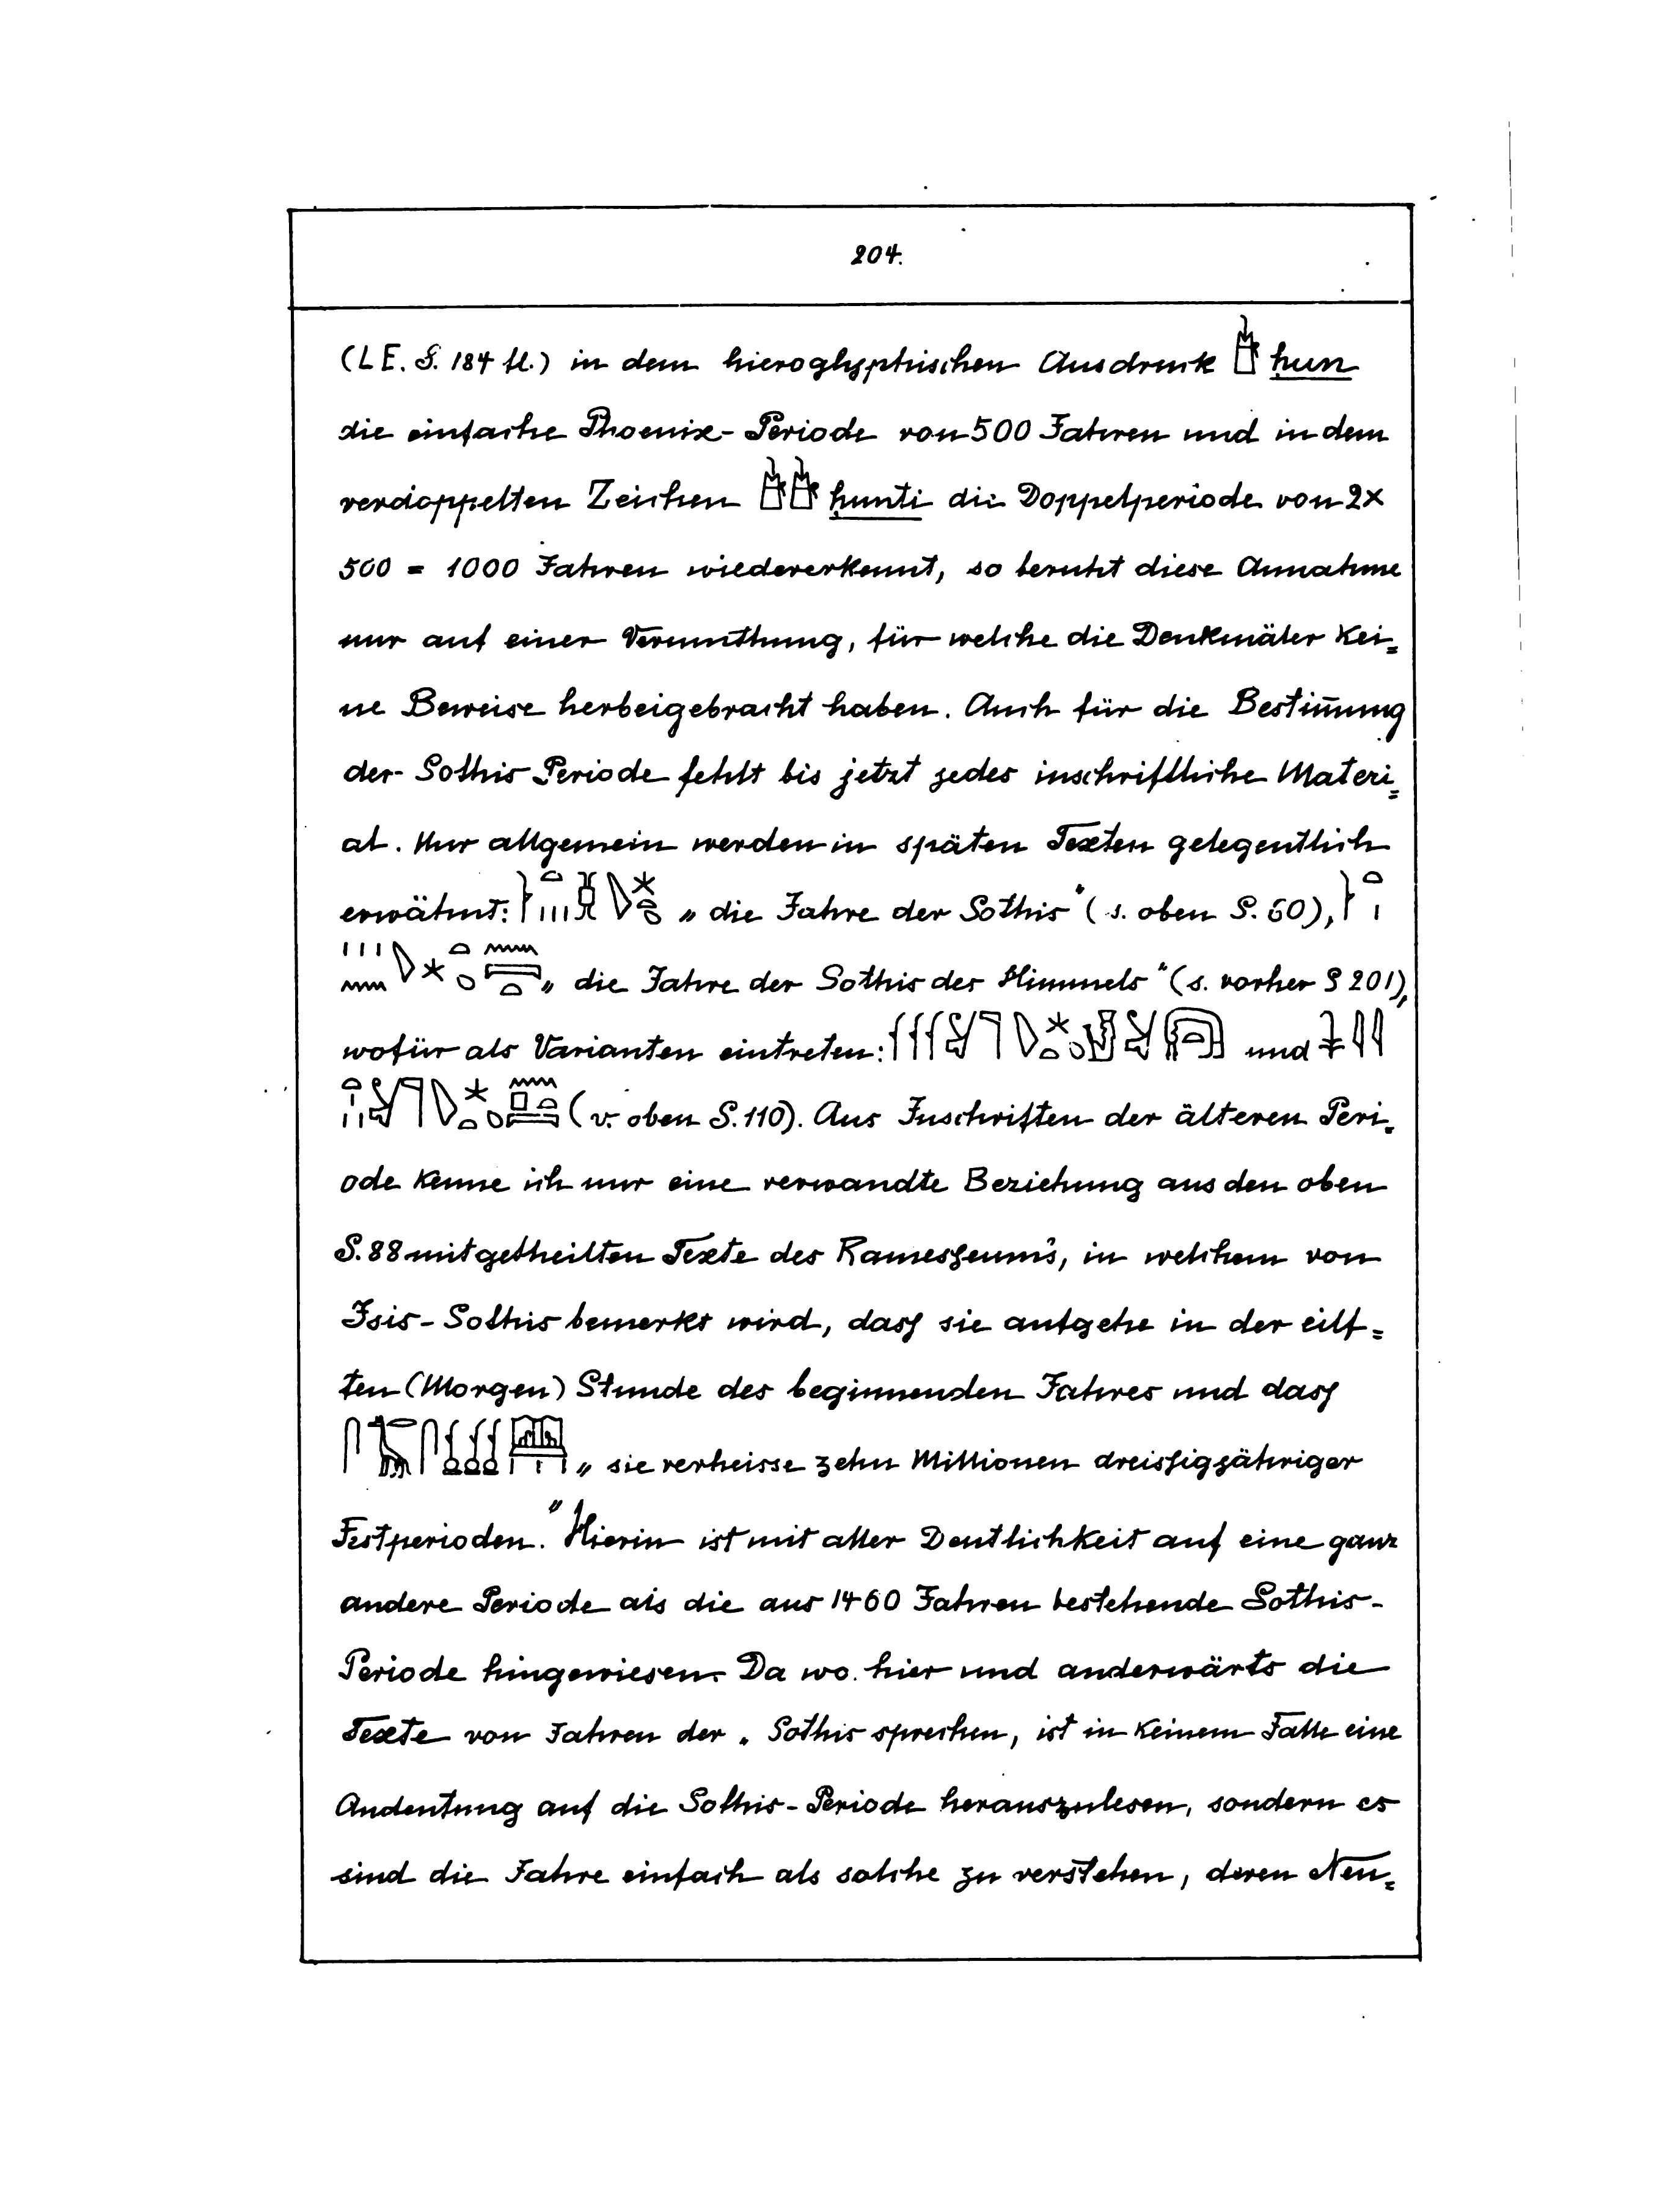 204.
(LE. S. 184 fl.) in dem hieroglyphischen Ausdruck ḥun
die einfache Phoenix-Periode von 500 Jahren und in dem
verdoppelten Zeichen ḥunti die Doppelperiode von 2×
500 = 1000 Jahren wiedererkennt, so beruht diese Annahme
nur auf einer Vermuthung, für welche die Denkmäler kei=
ne Beweise herbeigebracht haben. Auch für die Bestim̅ung
der Sothis Periode fehlt bis jetzt jedes inschriftliche Materi=
al. Nur allgemein werden in späten Texten gelegentlich
erwähnt: „die Jahre der Sothis“ (s. oben S. 60),
„die Jahre der Sothis des Himmels“ (s. vorher S 201),
wofür als Varianten eintreten: und
(v. oben S. 110). Aus Inschriften der älteren Peri=
ode kenne ich nur eine verwandte Beziehung aus den oben
S. 88 mitgetheilten Texte des Ramesseum's, in welchem von
Isis-Sothis bemerkt wird, dass sie aufgehe in der eilf=
ten (Morgen) Stunde des beginnenden Jahres und dass
„sie verheisse zehn Millionen dreissigjähriger
Festperioden.“ Hierin ist mit aller Deutlichkeit auf eine ganz
andere Periode als die aus 1460 Jahren bestehende Sothis-
Periode hingewiesen. Da wo hier und anderwärts die
Texte von Jahren der „Sothis sprechen, ist in keinem Falle eine
Andeutung auf die Sothis-Periode herauszulesen, sondern es
sind die Jahre einfach als solche zu verstehen, deren Neu=